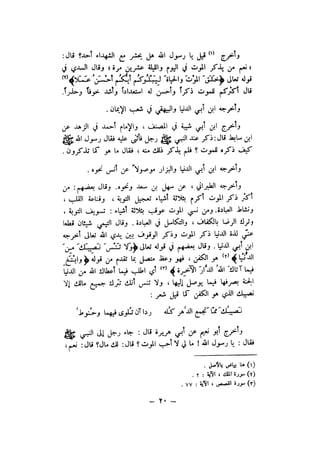 وأخرج (١) قيل يا رسول الله هل يحشر مع الشهداء أحد؟ قال :
« نعم من يذكر الموت في اليوم والليلة عشرين مرة » وقال السدي في
قوله تعالى ﴿خَلَقَ الموْتَ والحياةَ لِيَبْلُوَكُمْ أَيُّكُمْ أَحْسَنُ عَمَلاً﴾(٢)
قال أكثركم للموت ذكراً وأحسن له استعداداً وأشد خوفاً وحذراً.
أخرجه ابن أبي الدنيا والبيهقي في شعب الإيمان .
وأخرج ابن أبي شيبة في المصنف ، والإمام أحمد ، في الزهد عن
ابن سابط قال : ذكر عند النبي ﷺ رجل فأثنى عليه فقال رسول الله ﷺ
كيف ذكره للموت ؟ فلم يذكر ذلك منه ، فقال ما هو كما تذكرون .
وأخرج ابن أبي الدنيا والبزار موصولاً عن أنس نحوه .
وأخرج الطبراني ، عن سهل بن سعد ونحوه. وقال بعضهم : من
أكثر ذكر الموت أكرم بثلاثة أشياء تعجيل التوبة ، وقناعة القلب ،
ونشاط العبادة. ومن نسي الموت عوقب بثلاثة أشياء : تسويف التوبة ،
وترك الرضا بالكفاف ، والتكاسل في العبادة . وقال التيمي شيئان قطعا
عنّي لذة الدنيا ذكر الموت وذكر الوقوف بين يدي الله تعالى أخرجه
ابن أبي الدنيا . وقال بعضهم في قوله تعالى ﴿ولا تَنْسَ نَصيبَكَ مِنَ
الدنيا﴾(٣) هو الكفن ، فهو وعظ متصل بما تقدم من قوله ﴿وابْتَغِ
فيما آتاكَ اللهُ الدارَ الآخِرَةَ﴾(٣) أي اطلب فيما أعطاك الله من الدنيا
الجنة بصرفها فيما يوصل إليها ، ولا تنس أنك تترك جميع مالك إلا
نصيبك الذي هو الكفن كما قيل شعر :
نصيبُكَ مما تجمع الدهر كله ردا آن تلوى فيهما وحنوط
وأخرج أبو نعيم عن أبي هريرة قال : جاء رجل إلى النبي ﷺ
فقال : يا رسول الله ! ما لي لا أحب الموت ؟ قال : لك مال؟ قال : نعم،
(١) هنا بياض بالأصل .
(٢) سورة الملك ، الآية : ٢ .
(٣) سورة القصص ، الآية : ٧٧ .
— ٢٠ —